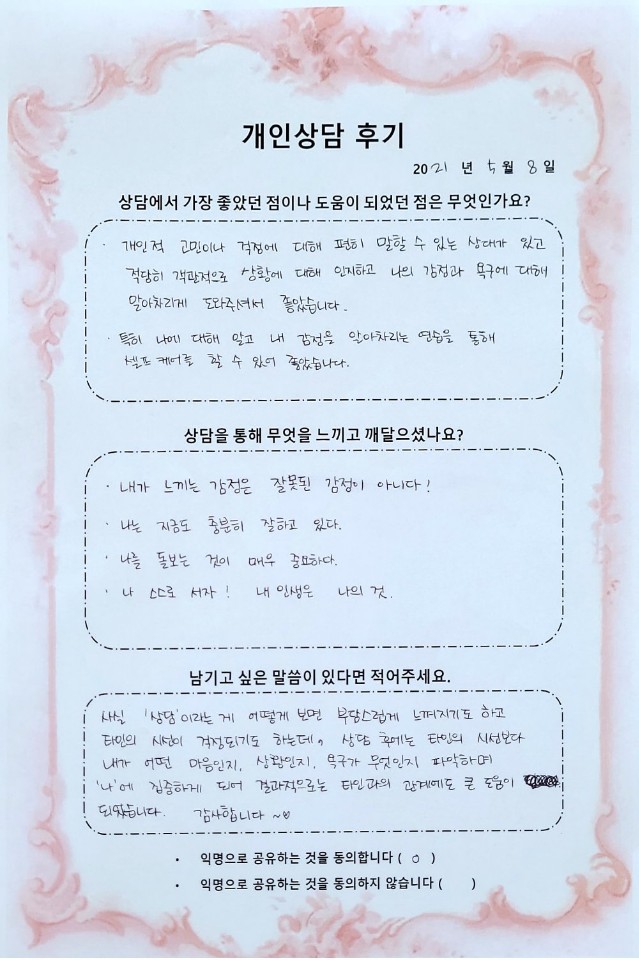 개인상담 후기
2021 년 5월 8일
상담에서 가장 좋았던 점이나 도움이 되었던 점은 무엇인가요?
· 개인적 고민이나 걱정에 대해 편히 말할 수 있는 상대가 있고
적당히 객관적으로 상황에 대해 인지하고 나의 감정과 욕구에 대해
알아차리게 도와주셔서 좋았습니다.
· 특히 나에 대해 알고 내 감정을 알아차리는 연습을 통해
셀프 케어를 할 수 있어 좋았습니다.
상담을 통해 무엇을 느끼고 깨달으셨나요?
· 내가 느끼는 감정은 잘못된 감정이 아니다!
· 나는 지금도 충분히 잘하고 있다.
· 나를 돌보는 것이 매우 중요하다.
· 나 스스로 서자! 내 인생은 나의 것.
남기고 싶은 말씀이 있다면 적어주세요.
사실 '상담'이라는 게 어떻게 보면 부담스럽게 느껴지기도 하고
타인의 시선이 걱정되기도 하는데, 상담 후에는 타인의 시선보다
내가 어떤 마음인지, 상황인지, 욕구가 무엇인지 파악하며
'나'에 집중하게 되어 결과적으로는 타인과의 관계에도 큰 도움이
되었습니다. 감사합니다 ~♡
• 익명으로 공유하는 것을 동의합니다 ( o )
• 익명으로 공유하는 것을 동의하지 않습니다 ( )